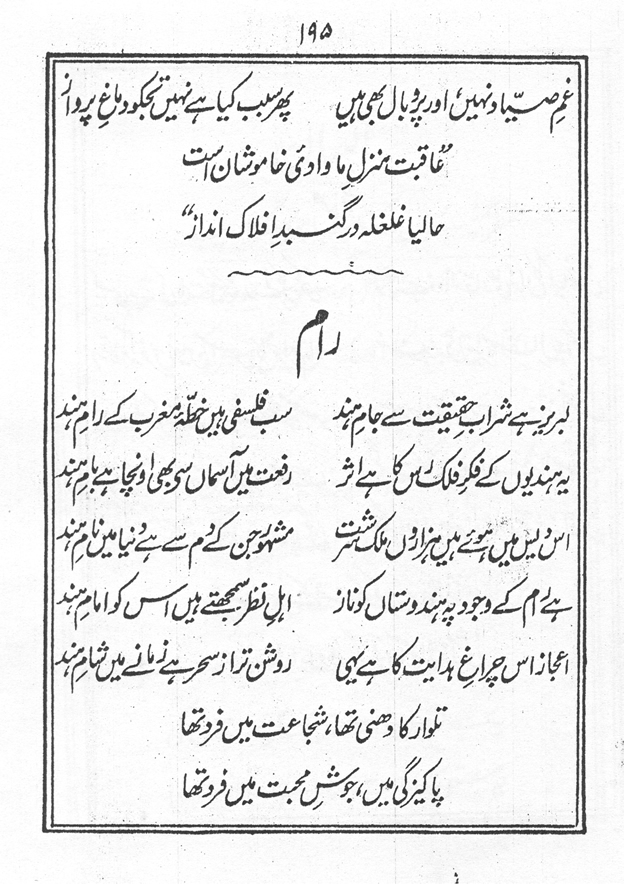 ۱۹۵
غمِ صیّاد نہیں، اور پر و بال بھی ہیں پھر سبب کیا ہے نہیں تجکو دماغِ پرواز
”عاقبت منزلِ ما وادیٔ خاموشان است
حالیا غلغلہ در گنبدِ افلاک انداز“
رام
لبریز ہے شرابِ حقیقت سے جامِ ہند سب فلسفی ہیں خطّۂ مغرب کے رامِ ہند
یہ ہندیوں کے فکرِ فلک رس کا ہے اثر رفعت میں آسماں سے بھی اونچا ہے بامِ ہند
اس دیس میں ہوئے ہیں ہزاروں ملک سرشت مشہور جن کے دم سے ہے دنیا میں نامِ ہند
ہے رام کے وجود پہ ہندوستاں کو ناز اہلِ نظر سمجھتے ہیں اس کو امامِ ہند
اعجاز اس چراغِ ہدایت کا ہے یہی روشن تر از سحر ہے زمانے میں شامِ ہند
تلوار کا دھنی تھا، شجاعت میں فرد تھا
پاکیزگی میں، جوشِ محبت میں فرد تھا